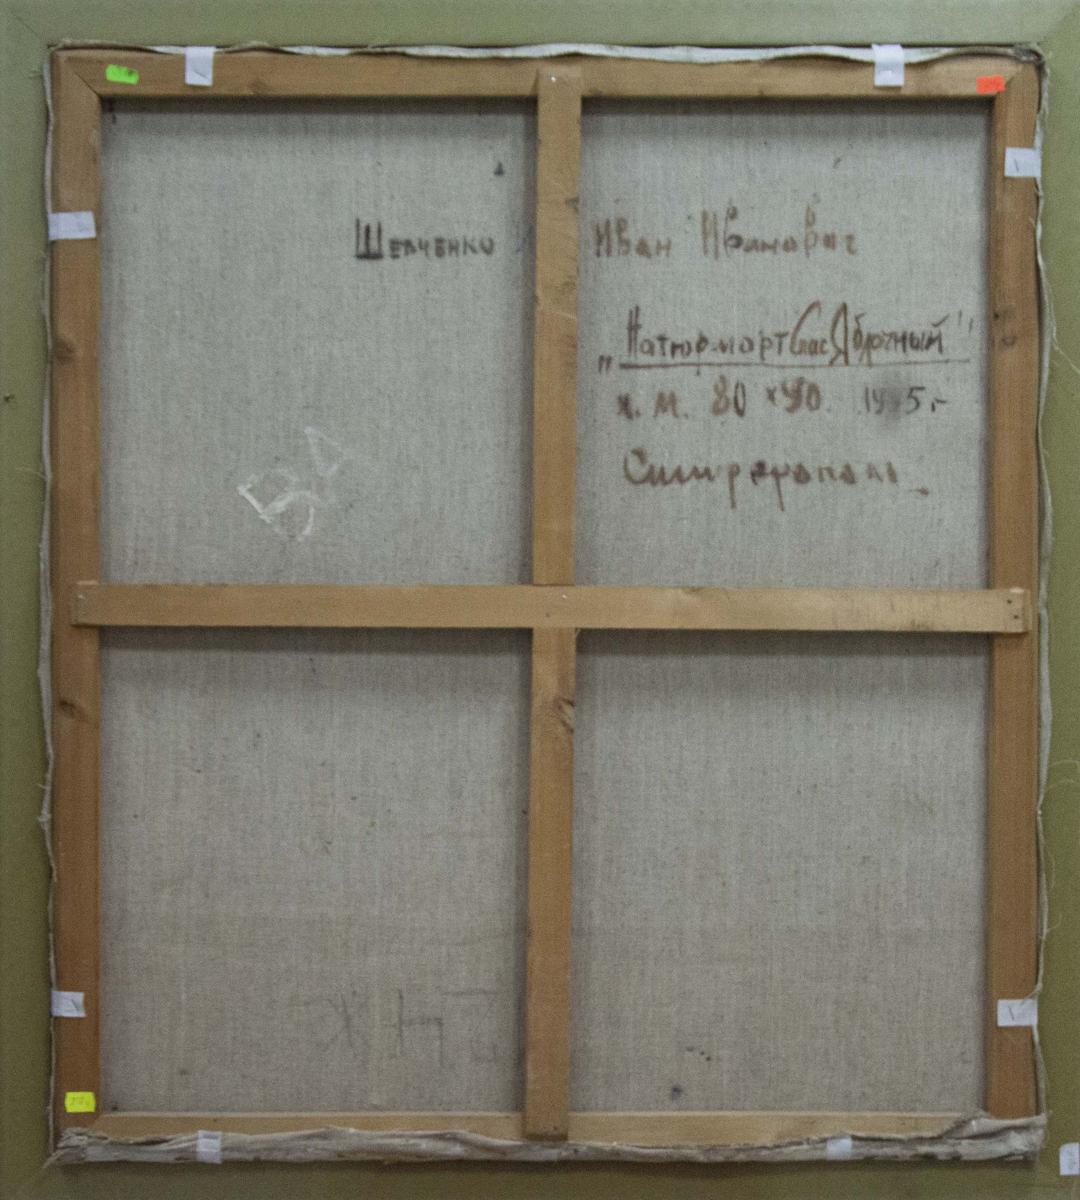 Шевченко Иван Иванович
„Натюрморт Спас Яблочный"
х. м. 80 х 90.
Симферополь